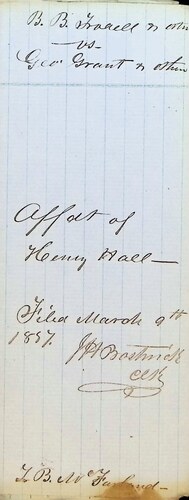 B. B. & others
vs.
Geo. Grant & others
Affdt of
Henry Hall
Filed March 9th
1857.
J H Bostwick
Clk
T. B. McFarland